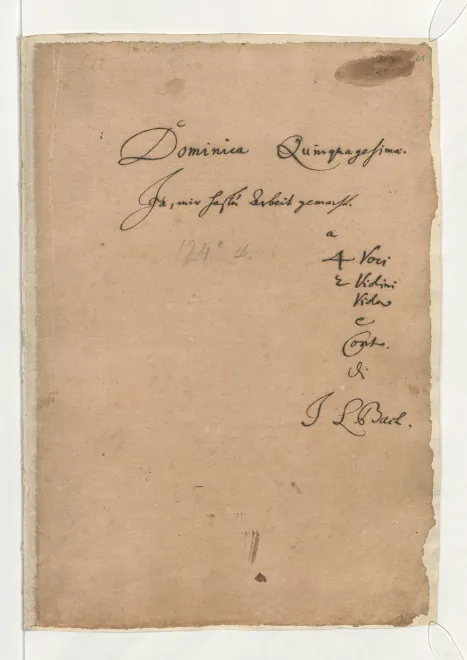 Dominica Quinquagesima.
Ja, mir hastu Arbeit gemacht.
a
4 Voci
2 Violini
Viola
e
Cont.
di
J L Bach.